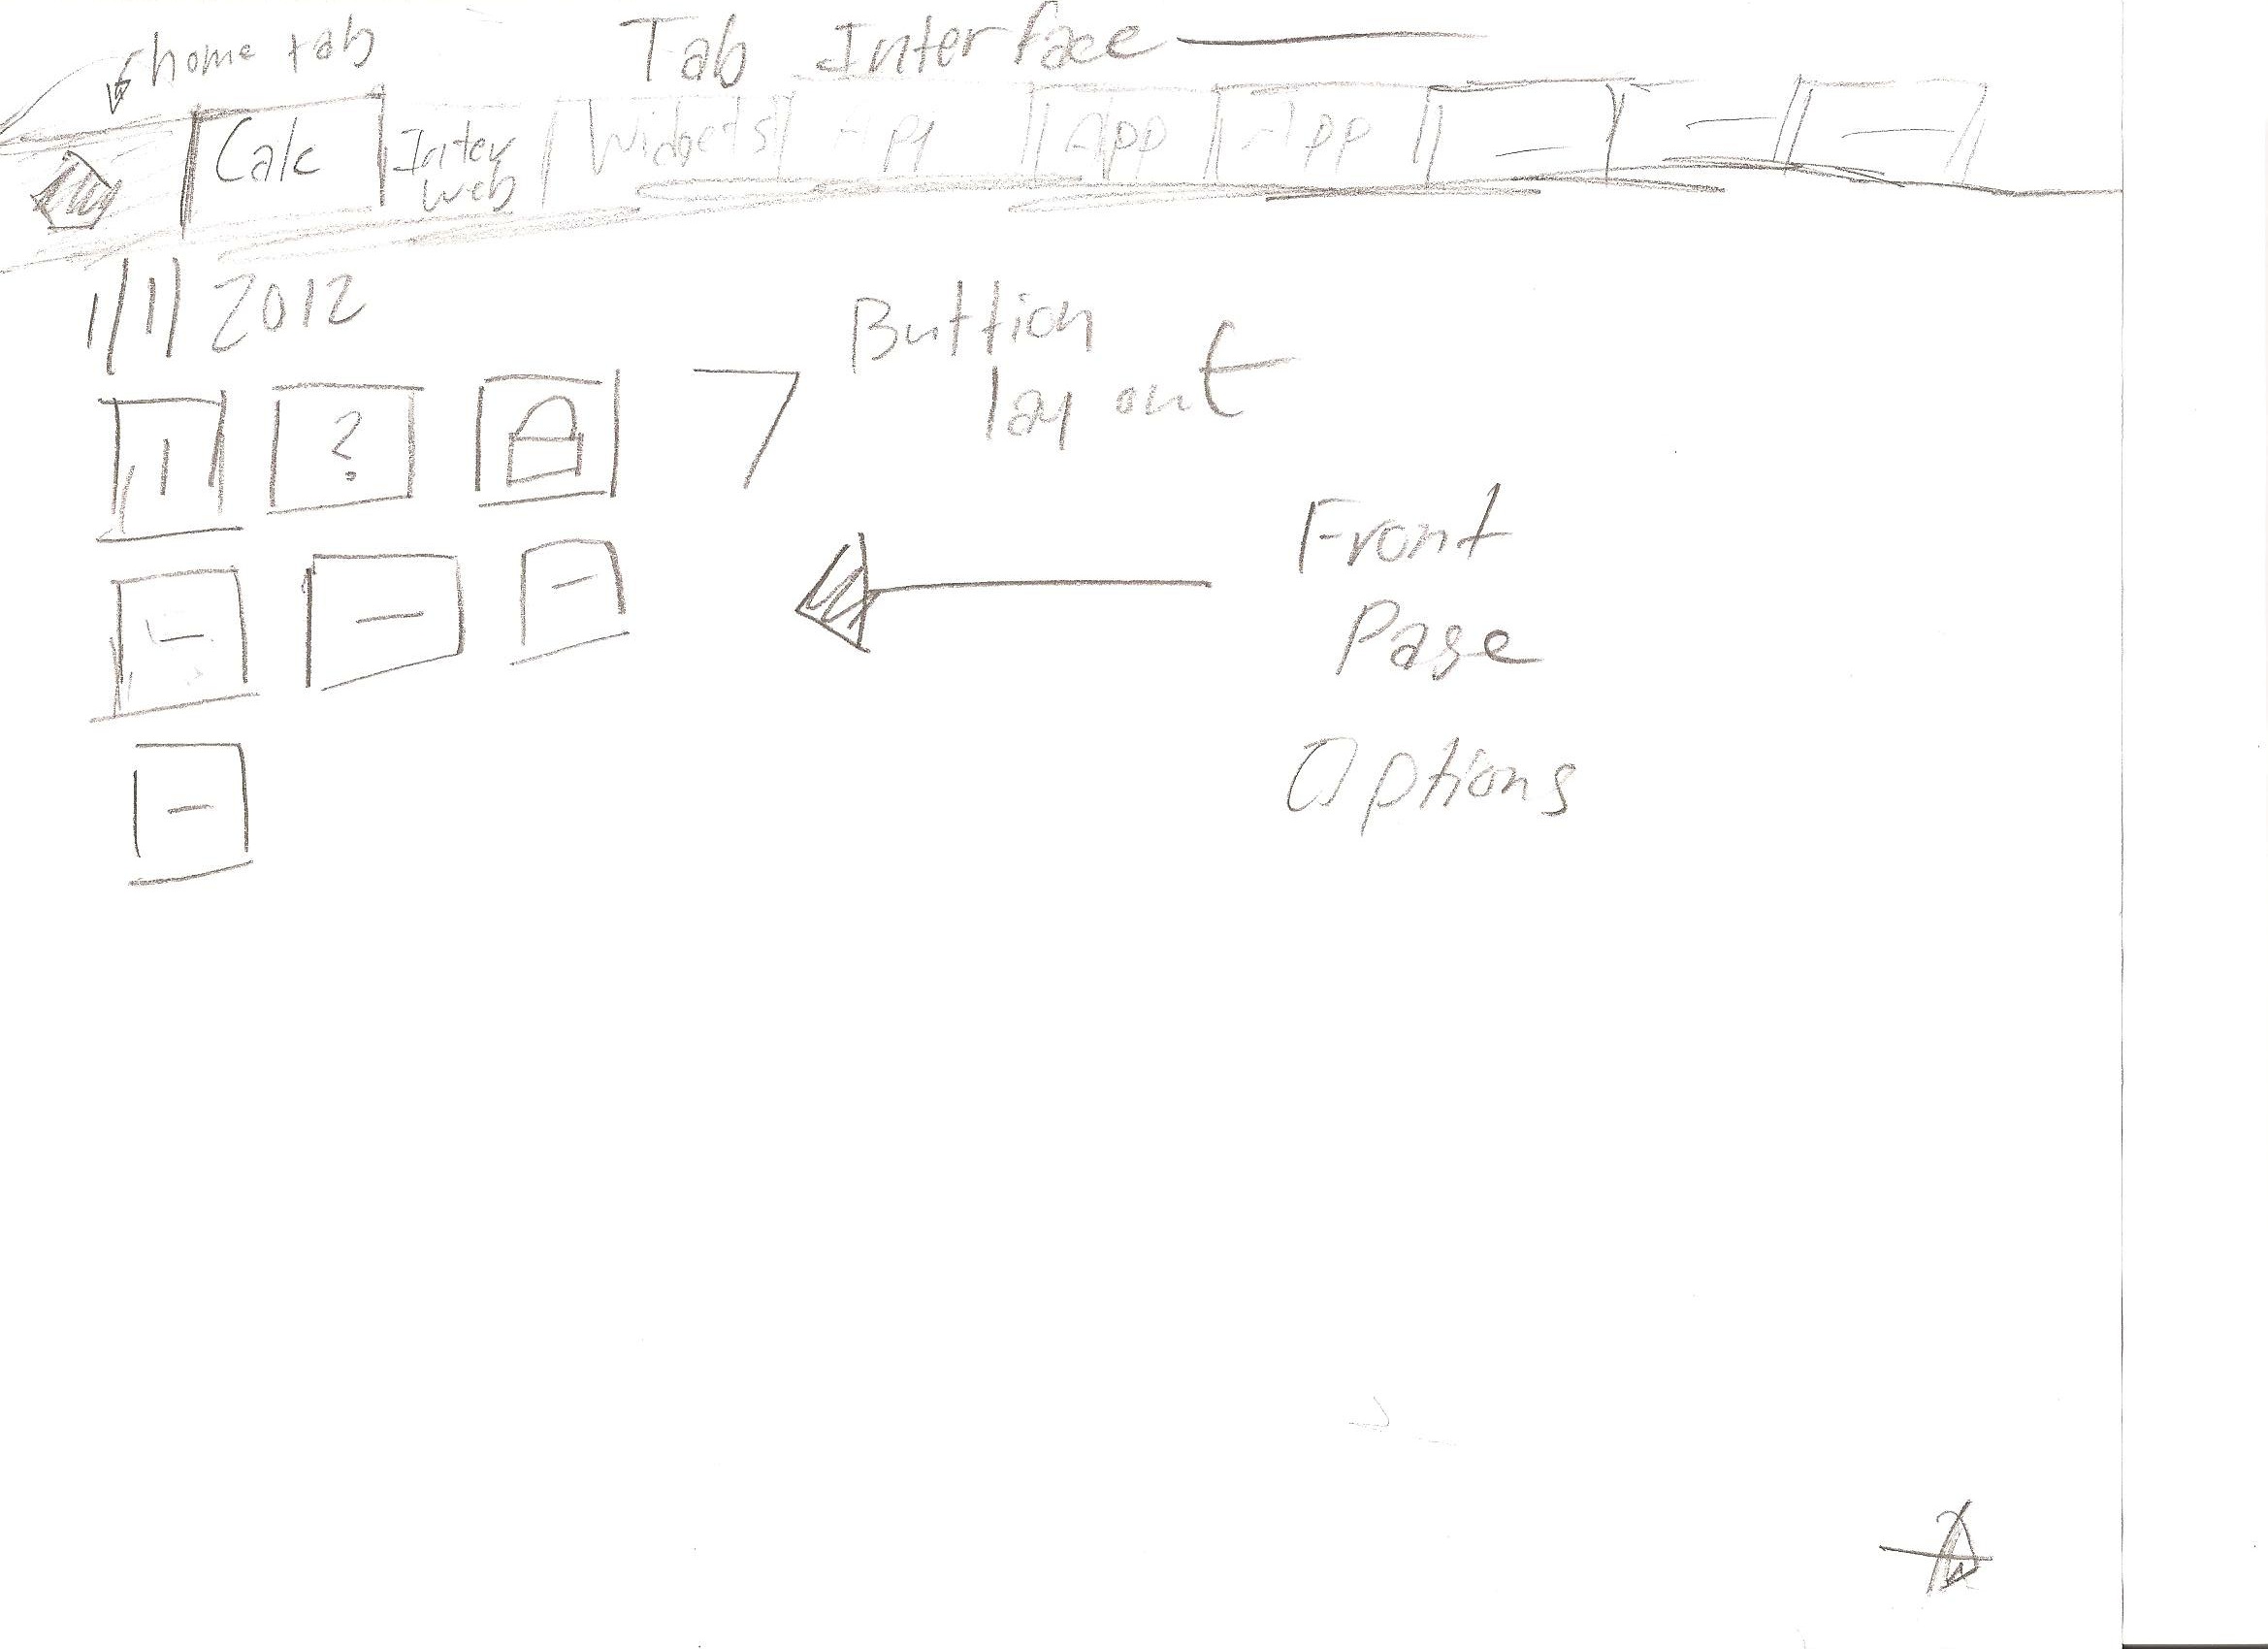 home tab
Tab Interface
Calc
Inter
web
Widgets
App
App
1/11 2012
Buttion
layout
?
Front
Page
Options